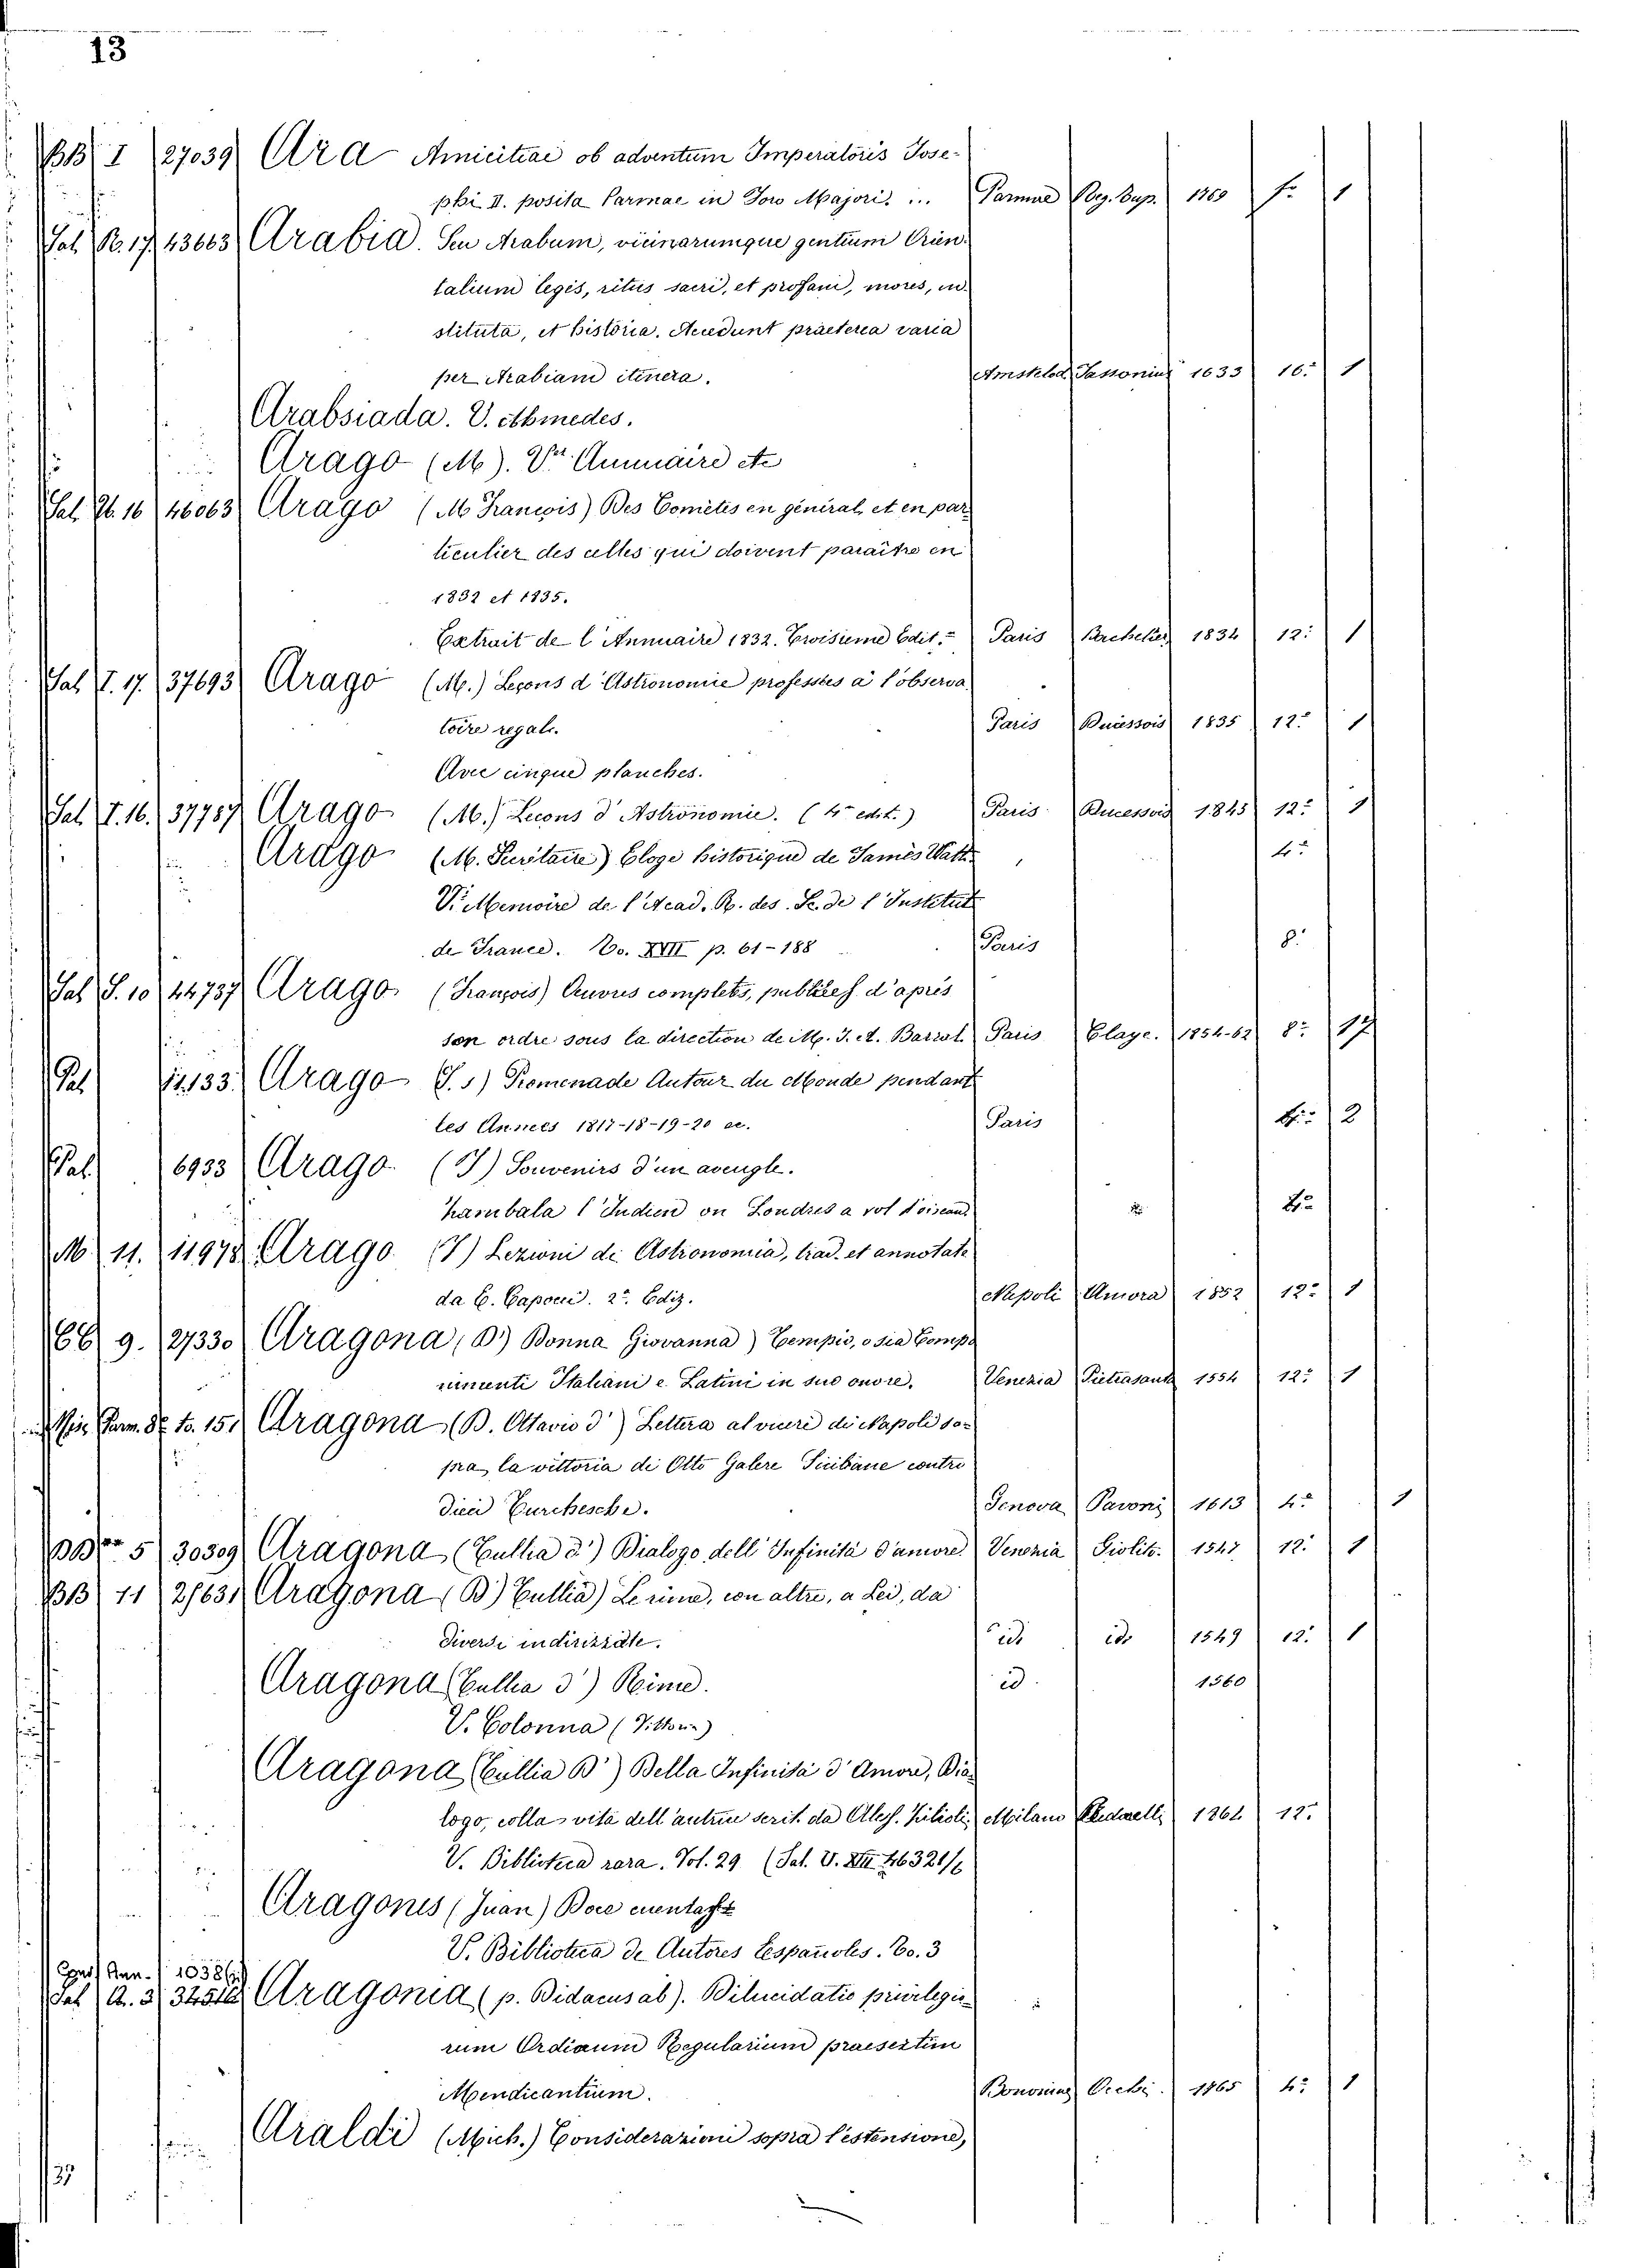 13
BB I 27039 Ara Amicitiae ob adventum Imperatoris Jose-
phi II. posita Parmae in Foro Majori. ... Parmae Reg. Typ. 1769 f.º 1
Sal. R. 17. 43663 Arabia. Seu Arabum, vicinarumque gentium Orien-
talium leges, ritus sacri, et profani, mores, in-
stituta, et historia. Accedunt praeterea varia
per Arabiam itinera. Amstelod. Janssonius 1633 16.º 1
Arabsiada. V. Ahmedes.
Arago (M). V. Annuaire etc
Sal. 16 46063 Arago (M François) Des Comètes en général, et en par-
ticulier des celles qui doivent paraître en
1832 et 1835.
Extrait de l'Annuaire 1832. Troisieme Edit. = Paris Bachelier 1834 12.º 1
Sal. T. 17. 37693 Arago (M.) Leçons d'Astronomie professées à l'observa-
toire regale. Paris 1835 12.º 1
Avec cinque planches.
Sal. T. 16. 37787 Arago (M.) Lecons d'Astronomie. (4.e edit.) Paris 1845 12.º 1
Arago (M. Secrétaire) Eloge historique de James Watt. 4.º
V. Memoire de l'Acad. R. des Sc. de l'Institut
de France. To. XVII p. 61-188 Paris 8.º
Sal. S. 10 44737 Arago (François) Œuvres complets, publiées d'après
son ordre sous la direction de M. J. A. Barral. Paris Claye. 1854-62 8.º 17
Pal. 11,133. Arago (J.) Promenade Autour du Monde pendant
les Années 1817-18-19-20 ec. Paris 4.º 2
Pal. 6933 Arago (J) Souvenirs d'un aveugle.
hambala l'Indien ou Londres a vol d'oiseau
M 11. 11978 Arago (J) Lezioni di Astronomia, trad. et annotate
da E. Capocci. 2.a Ediz. Napoli Amora 1852 12.º 1
CC 9. 27330 Aragona (D.) Donna Giovanna) Tempio, o sia Compo-
nimenti Italiani e Latini in suo onore. Venezia Pietrasant. 1554 12.º 1
Parm. 8.º to. 151 Aragona (D. Ottavio d') Lettera al vicerè di Napoli so-
pra la vittoria di Otto Galere Siciliane contro
dieci Turchesche. Genova Pavoni 1613 4.º 1
5 30309 Aragona (Tullia d') Dialogo dell' Infinità d'amore Venezia Giolito. 1547 12.º 1
BB 11 21631 Aragona (D) Tullia) Le rime, con altre, a Lei, da
diversi indirizzate. id. id. 1549 12.º 1
Aragona (Tullia d') Rime. id. 1560
V. Colonna (Vittoria)
Aragona (Tullia D') Della Infinità d'Amore, Dia-
logo, colla vita dell'autrice scrit. da Aless. Zilioli Milano Daelli 1864 12.º
V. Biblioteca rara. Vol. 29 (Sal. V. XIII 46321/
Aragones (Juan) Doce cuentas
V. Biblioteca de Autores Españoles. To. 3
Ann. 1038
Sal. A. 3 Aragonia (p. Didacus ab). Dilucidatio privilegio-
rum Ordinum Regularium praesertim
Mendicantium. Bononiae 1765 4.º 1
Araldi (Mich.) Considerazioni sopra l'estensione,